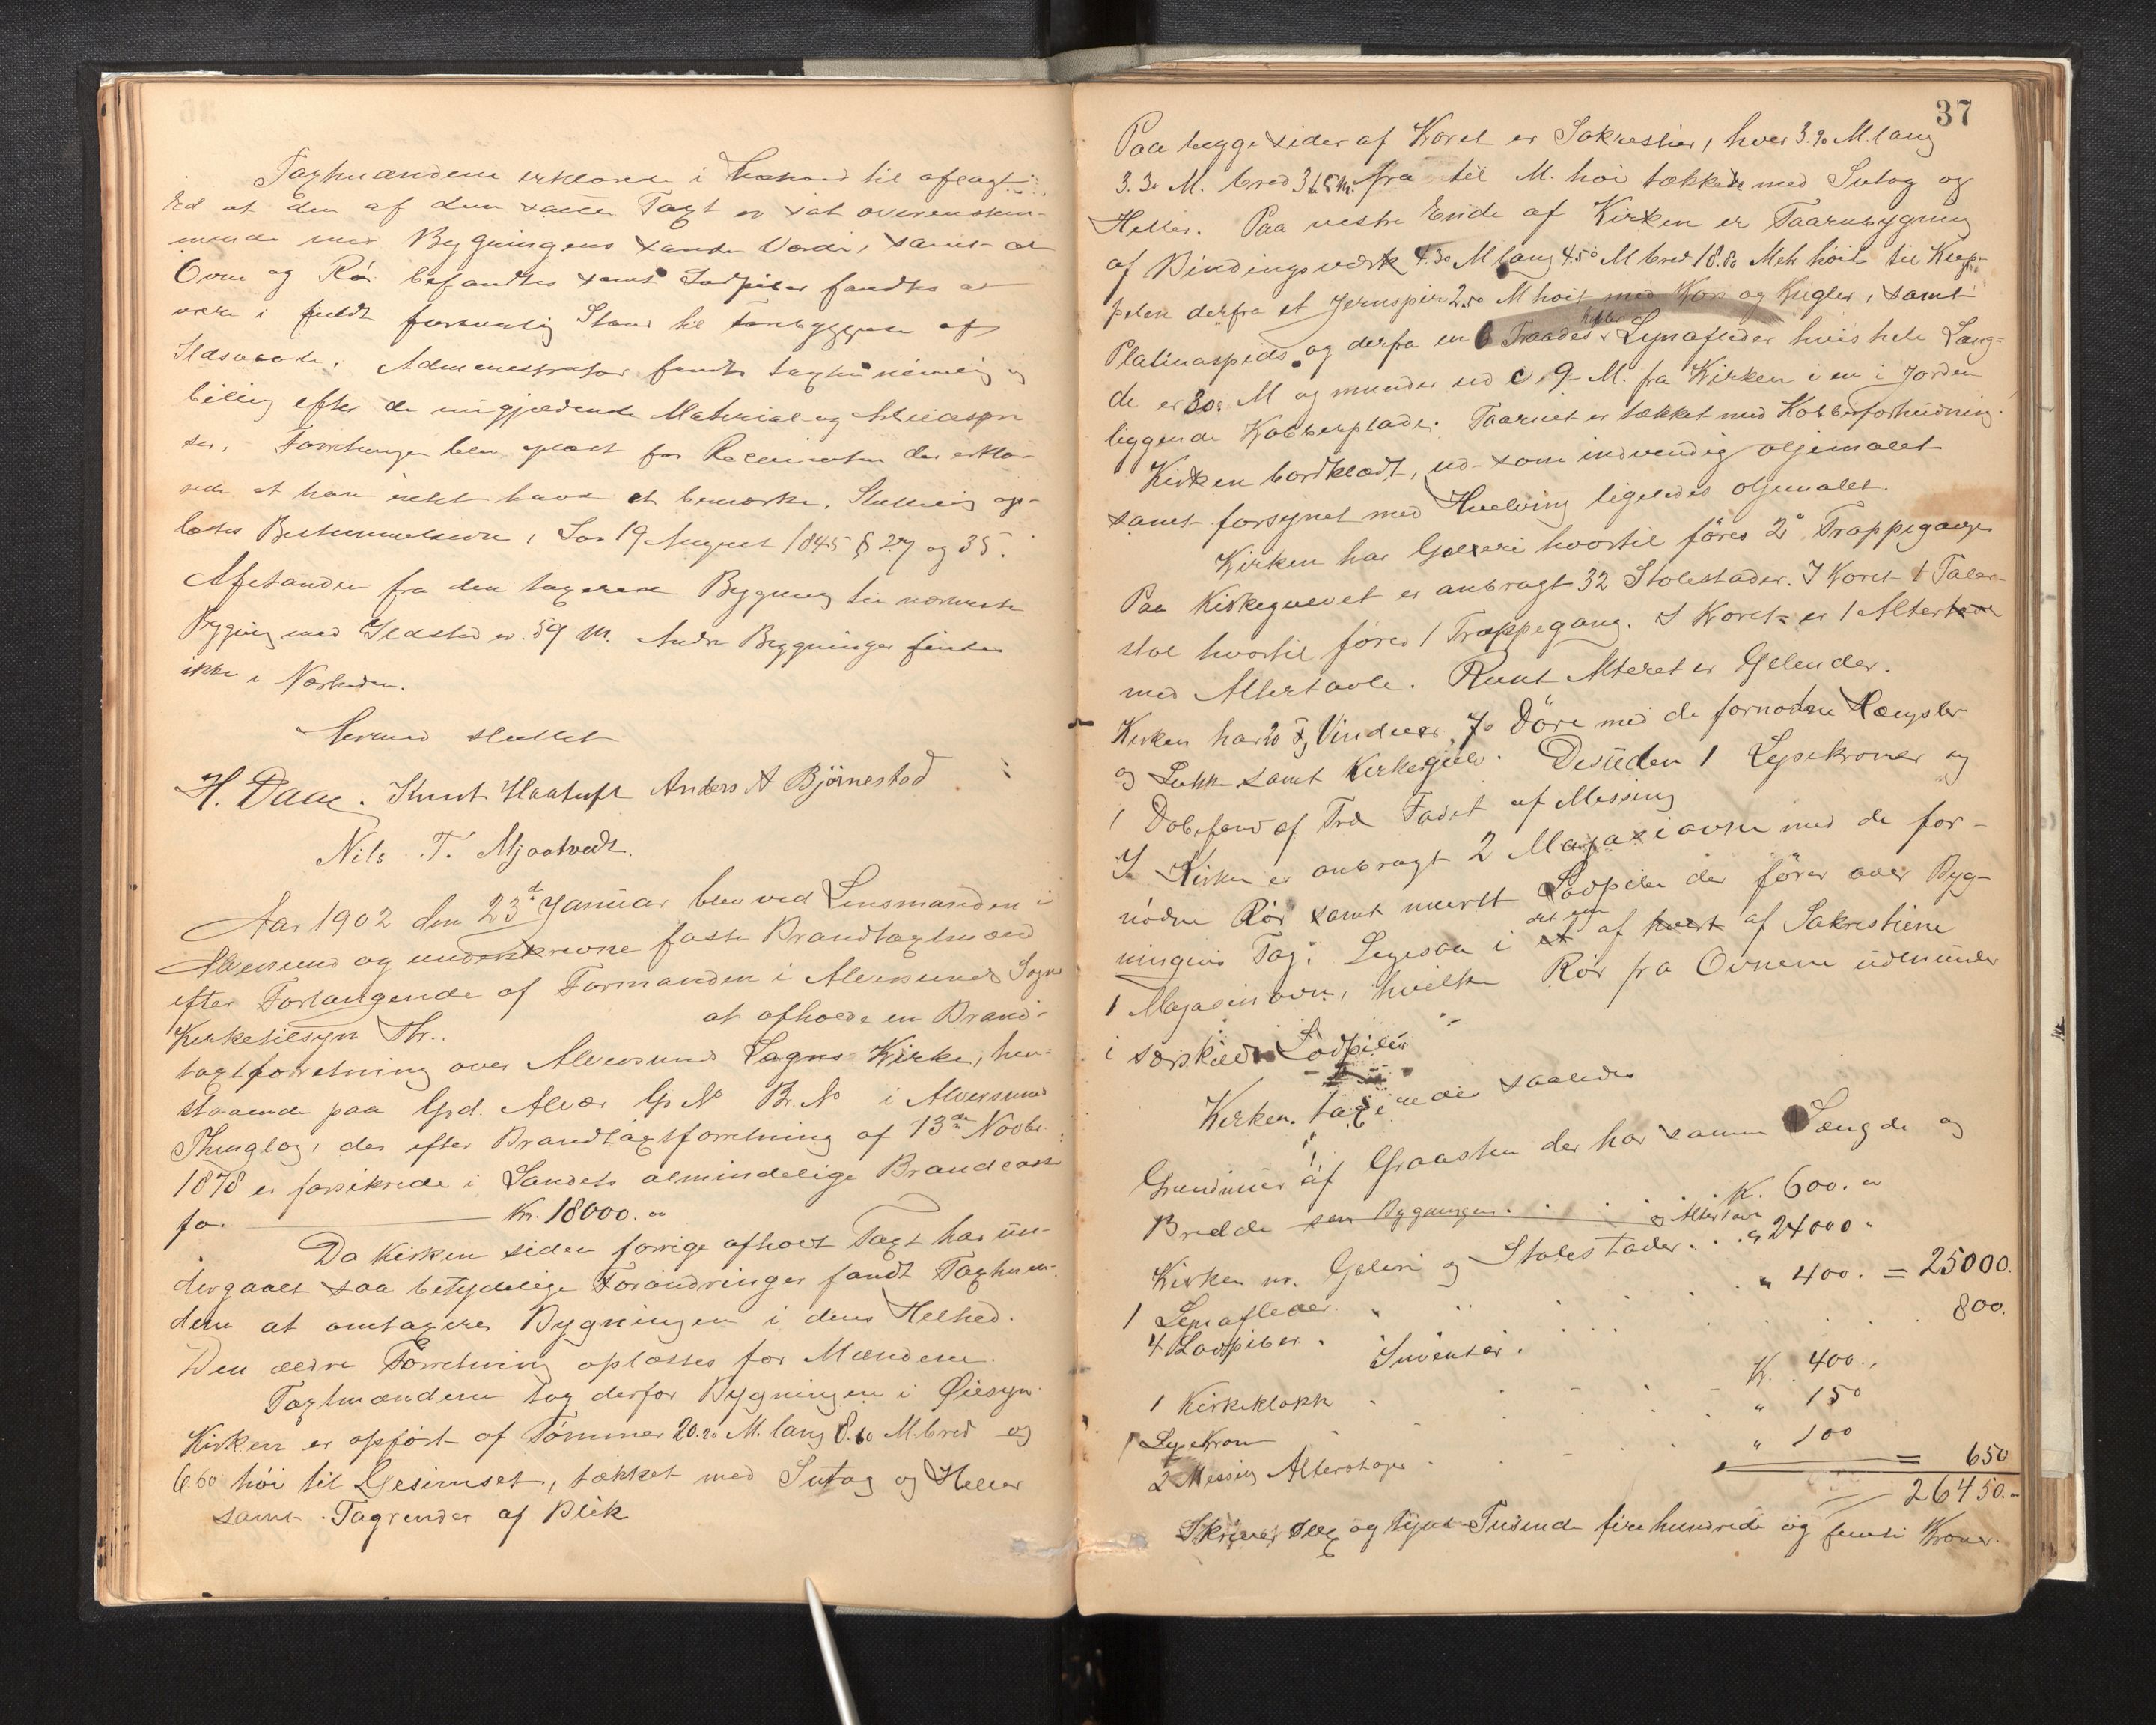 Taxtmændene erklærede i Henhold til aflagt
Ed at den af dem satte Taxt er sat overensstem-
mende med Bygningens sande Værdi, samt at
Ovne og Rør befandtes samt Lodpiber fandtes at
være i fuldt forsvarlig Stand til Forebyggelse af
Ildsvaade. Administrator fandt taxten rimelig og
billig efter de nugjældende Material- og Arbeidspri-
ser. Forretningen blev oplæst for Recvirenten der erklæ-
rede at han intet havde at bemærke. Sluttelig op-
læstes Bestemmelserne i Lov 19 August 1845 § 27 og 35.
Afstanden fra den taxerede Bygning til nærmeste
Bygning med Ildsted er 59 M. Andre Bygninger findes
ikke i Nærheden.
Hermed sluttet
H. Daae. Knut Haatuft Anders A Björnestad
Nils T. Mjaatvedt.
Aar 1902 den 23de Januar blev ved Lensmanden i
Alversund og underskrevne faste Brandtaxtmænd
efter Forlangende af Formanden i Alversunds Sogns
Kirketilsyn Hr. at afholde en Brand-
taxtforretning over Alversund Sogns Kirke, hen-
staaende paa Grd. Alver G No Br. No i Alversund
Thinglag, der efter Brandtaxtforretning af 13de Novbr.
1878 er forsikrede i Landets almindelige Brandcasse
for Kr. 18000.00
Da Kirken siden forrige afholdt Taxt har un-
dergaaet saa betydelige Forandringer fandt Taxtmæn-
dene at omtaxere Bygningen i dens Helhed.
Den ældre Forretning oplæstes for Mændene.
Taxtmændene tog derfor Bygningen i Øiesyn.
Kirken er opført af Tømmer 20.20 M. lang 8.60 M. bred og
6.60 høi til Gesimset, tækket med Sutag og Heller
samt Tagrender af Blik
37
Paa begge sider af Koret er Sakrestier, hver 3.90 M. lang
3.30 M. bred 3.65 M. fra til M. høi tækket med Sutag og
Heller. Paa vestre Ende af Kirken er Taarnbygning
af Bindingsværk 4.30 M lang 4.50 M bred 18.80 Metr høit til Kup-
pelen derfra et Jernspir 2.50 M høit med Kors og Kugler, samt
Platinaspids og derfra en 6 Traades Kobber Lynafleder hvis hele Læng-
de er 30. M og munder ud c. 9 M. fra Kirken i en i Jorden
liggende Kobberplade. Taarnet er tækket med Kobberforhudning.
Kirken bordklædt, ud- som indvendig oljemalet
samt forsynet med Hvelving ligeledes oljemalet.
Kirken har Galleri hvortil føres 2 Trappegange
Paa Kirkegulvet er anbragt 32 Stolestader. I Koret 1 Taler-
stol hvortil føres 1 Trappegang. I Koret er 1 Alter
med Altertavle. Rundt Alteret er Gelender.
Kirken har 20 Fg Vinduer, 7 Döre med de fornødne Hængsler
og Lukke samt Kirkegulv. Desuden 1 Lysekroner og
1 Døbefond af Træ Fadet af Messing
I Kirken er anbragt 2 Magasinovne med de for-
nødne Rør samt muret Lodpibe der fører over Byg-
ningens Tag. Ligesaa i det ene af hvert af Sakrestierne
1 Magasinovn, hvilke Rør fra Ovnene udmunder
i særskildte Lodpiber
Kirken taxeredes saaledes
Grundmur af Graasten der har samme Længde og
Bredde som Bygningen K. 600.00
Kirken m. Galleri og Stolestader og Altertavle " 24000 "
1 Lynafleder " 400. = 25000.
4 Lodpiber 800.
Inventar.
1 Kirkeklokke K. 400.
1 Lysekrone " 150
2 Messing Alterstager " 100 = 650
26450.
Skriver sex og tyve Tusinde fire hundrede og femti Kroner.